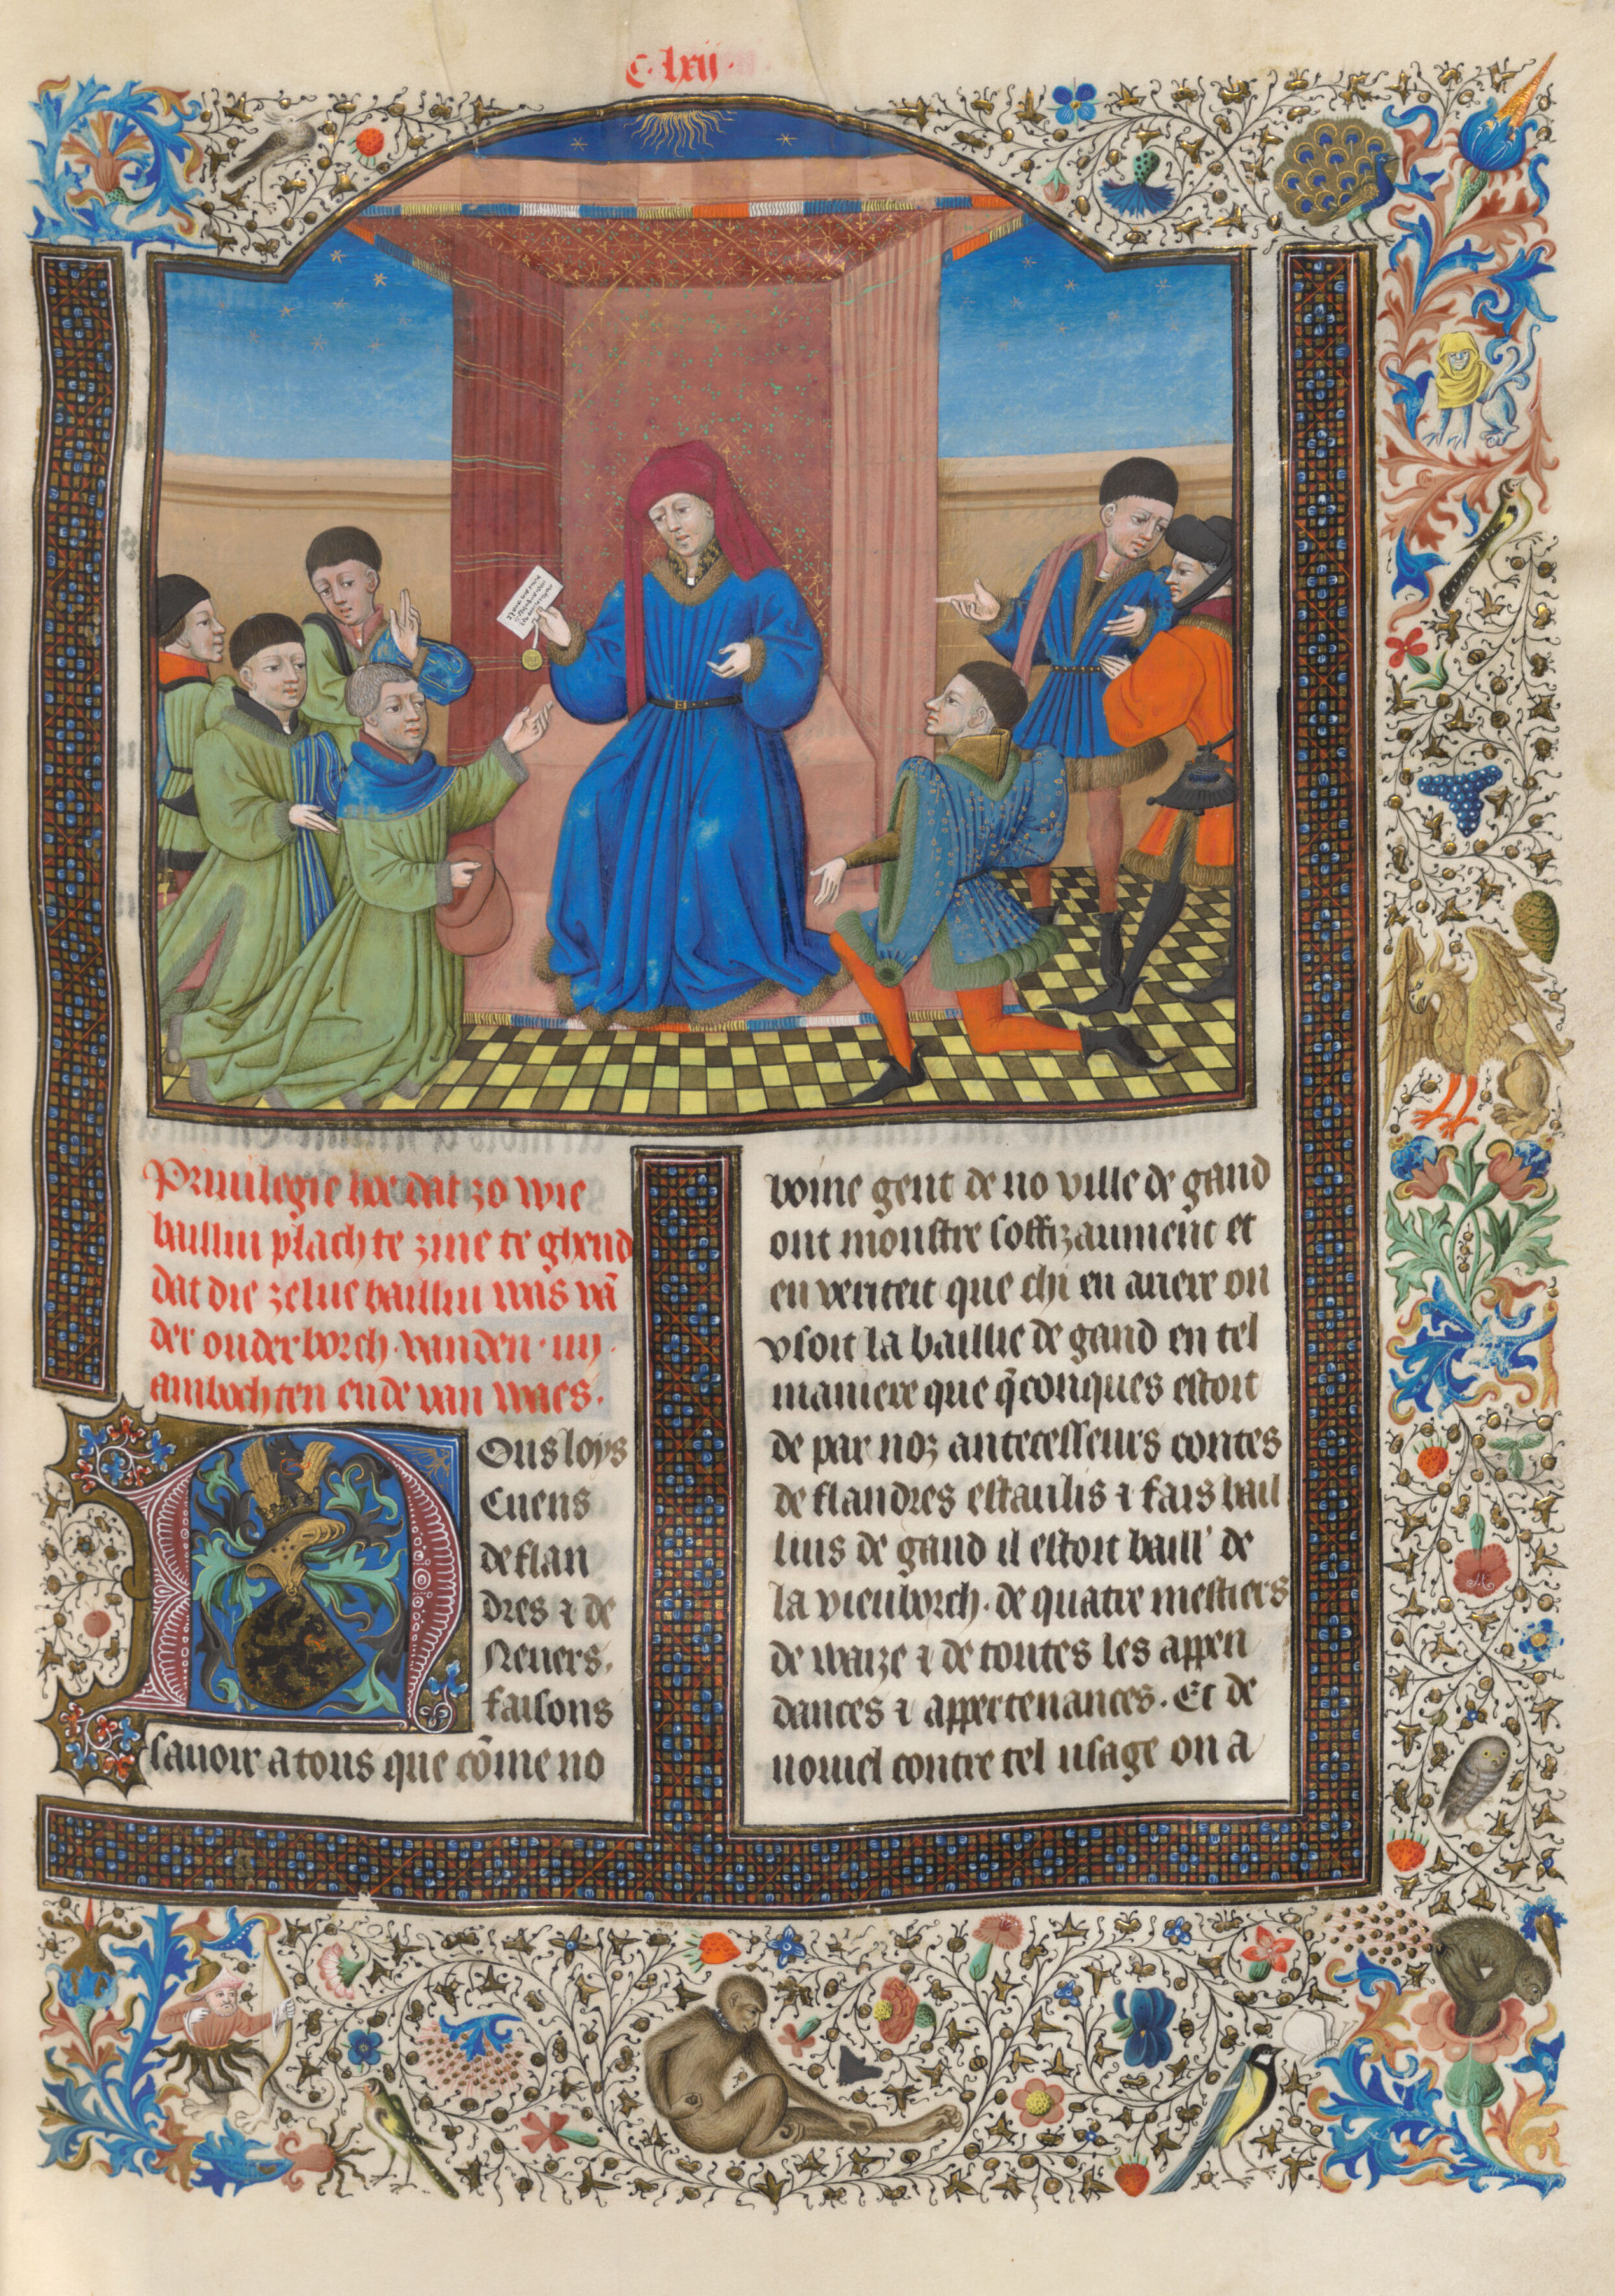 C·lxii·
Priuilegie hoe dat zo wie
bailliu plach te zine te ghend
dat die zelue bailliu was vā
der ouderborch· vanden· iiij·
ambochten ende van waes.
Nous loys
Cuens
de flan
dres ⁊ de
Neuers.
faisons
sauoir a tous que cōme no
boine gent de no ville de gand
ont monstre souffizaument et
en veriteit que chi en arriere on
vsoit la baillie de gand en tel
maniere que q̄conques estoit
de par noz antecesseurs contes
de flandres estaulis ⁊ fais bail
lius de gand il estoit baill' de
la vieuborch· de quatre mestiers
de waize ⁊ de toutes les appen
dances ⁊ appertenances. Et de
nouuel contre tel usage on a